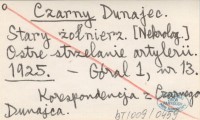 Czarny Dunajec.
Stary żołnierz. [Nekrolog.]
Ostre strzelanie artylerii.
1925. — Góral 1, nr 13.
Korespondencja z Czarnego
Dunajca.